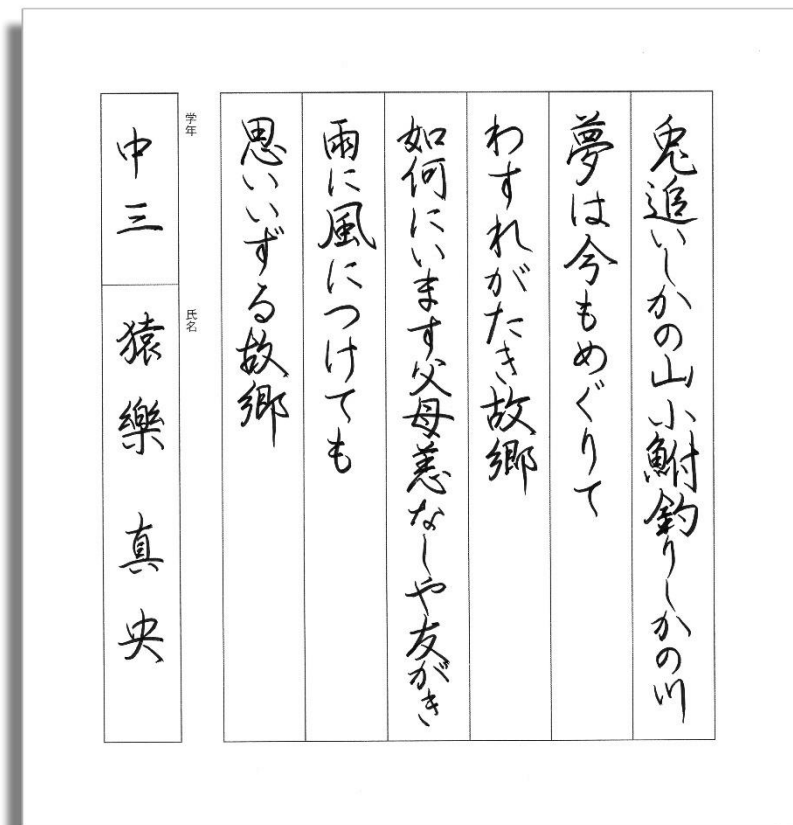 兎追いしかの山小鮒釣りしかの川
夢は今もめぐりて
わすれがたき故郷
如何にいます父母恙なしや友がき
雨に風につけても
思いいずる故郷
学年
中三
氏名
猿樂 真央